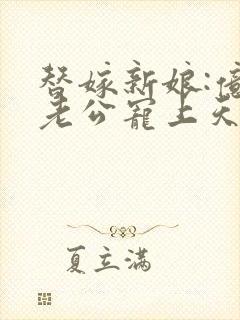 替嫁新娘:億
老公寵上天
夏立滿